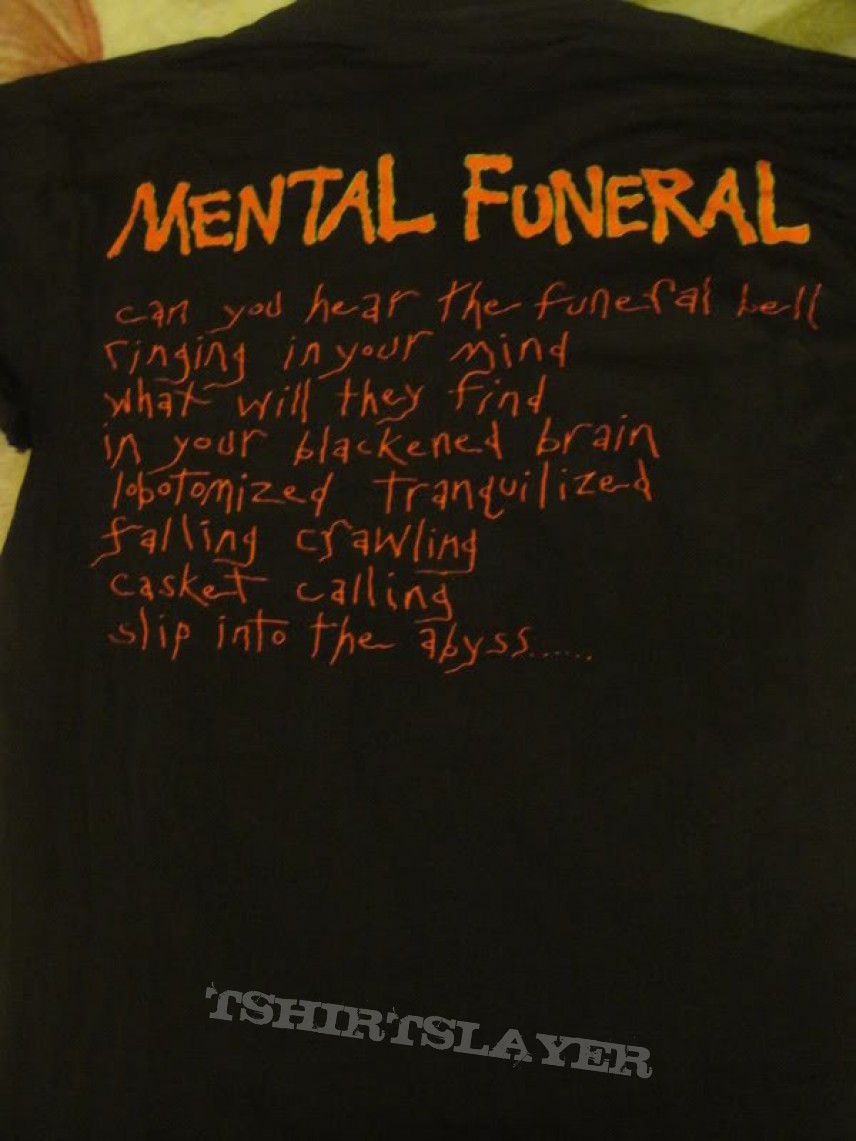 MENTAL FUNERAL
can you hear the funeral bell
ringing in your mind
what will they find
in your blackened brain
lobotomized tranquilized
falling crawling
casket calling
slip into the abyss......
TSHIRTSLAYER